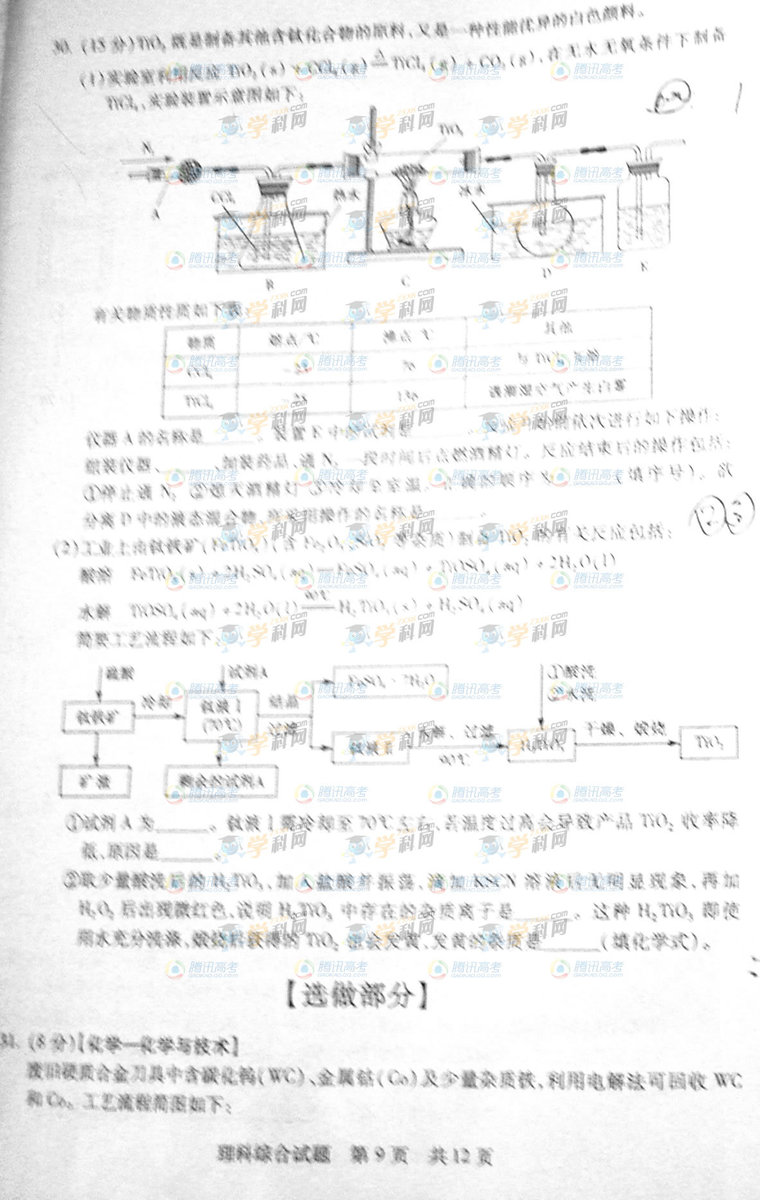 30. (15分)TiO₂ 既是制备其他含钛化合物的原料,又是一种性能优异的白色颜料。
(1)实验室利用反应 TiO₂(s)+CCl₄(g) =△= TiCl₄(g)+CO₂(g),在无水无氧条件下制备
TiCl₄,实验装置示意图如下:
N₂
TiO₂
A
CCl₄
热水
冰水
B
C
D
E
有关物质性质如下表:
物质 熔点/℃ 沸点/℃ 其他
CCl₄ -23 76 与 TiCl₄ 互溶
TiCl₄ -25 136 遇潮湿空气产生白雾
仪器 A 的名称是 。装置 E 中的试剂是 。反应开始前依次进行如下操作:
组装仪器、 、加装药品、通 N₂ 一段时间后点燃酒精灯。反应结束后的操作包括:
①停止通 N₂ ②熄灭酒精灯 ③冷却至室温。正确的顺序为 (填序号)。欲
分离 D 中的液态混合物,所采用操作的名称是 。
(2)工业上由钛铁矿(FeTiO₃)(含 Fe₂O₃、SiO₂ 等杂质)制备 TiO₂ 的有关反应包括:
酸溶 FeTiO₃(s)+2H₂SO₄(aq)═FeSO₄(aq)+TiOSO₄(aq)+2H₂O(l)
水解 TiOSO₄(aq)+2H₂O(l) =90℃= H₂TiO₃(s)+H₂SO₄(aq)
简要工艺流程如下:
硫酸 试剂A ①酸洗
②水洗
钛铁矿 冷却 钛液Ⅰ(70℃) 结晶 过滤 FeSO₄·7H₂O
钛液Ⅱ 水解、过滤 90℃ H₂TiO₃ 干燥、煅烧 TiO₂
矿渣 剩余的试剂A
①试剂 A 为 。钛液Ⅰ需冷却至 70℃左右,若温度过高会导致产品 TiO₂ 收率降
低,原因是 。
②取少量酸洗后的 H₂TiO₃,加入盐酸并振荡,滴加 KSCN 溶液后无明显现象,再加
H₂O₂ 后出现微红色,说明 H₂TiO₃ 中存在的杂质离子是 。这种 H₂TiO₃ 即使
用水充分洗涤,煅烧后获得的 TiO₂ 也会发黄,发黄的杂质是 (填化学式)。
【选做部分】
31. (8分)【化学—化学与技术】
废旧硬质合金刀具中含碳化钨(WC)、金属钴(Co)及少量杂质铁,利用电解法可回收 WC
和Co。工艺流程简图如下:
理科综合试题 第9页 共12页